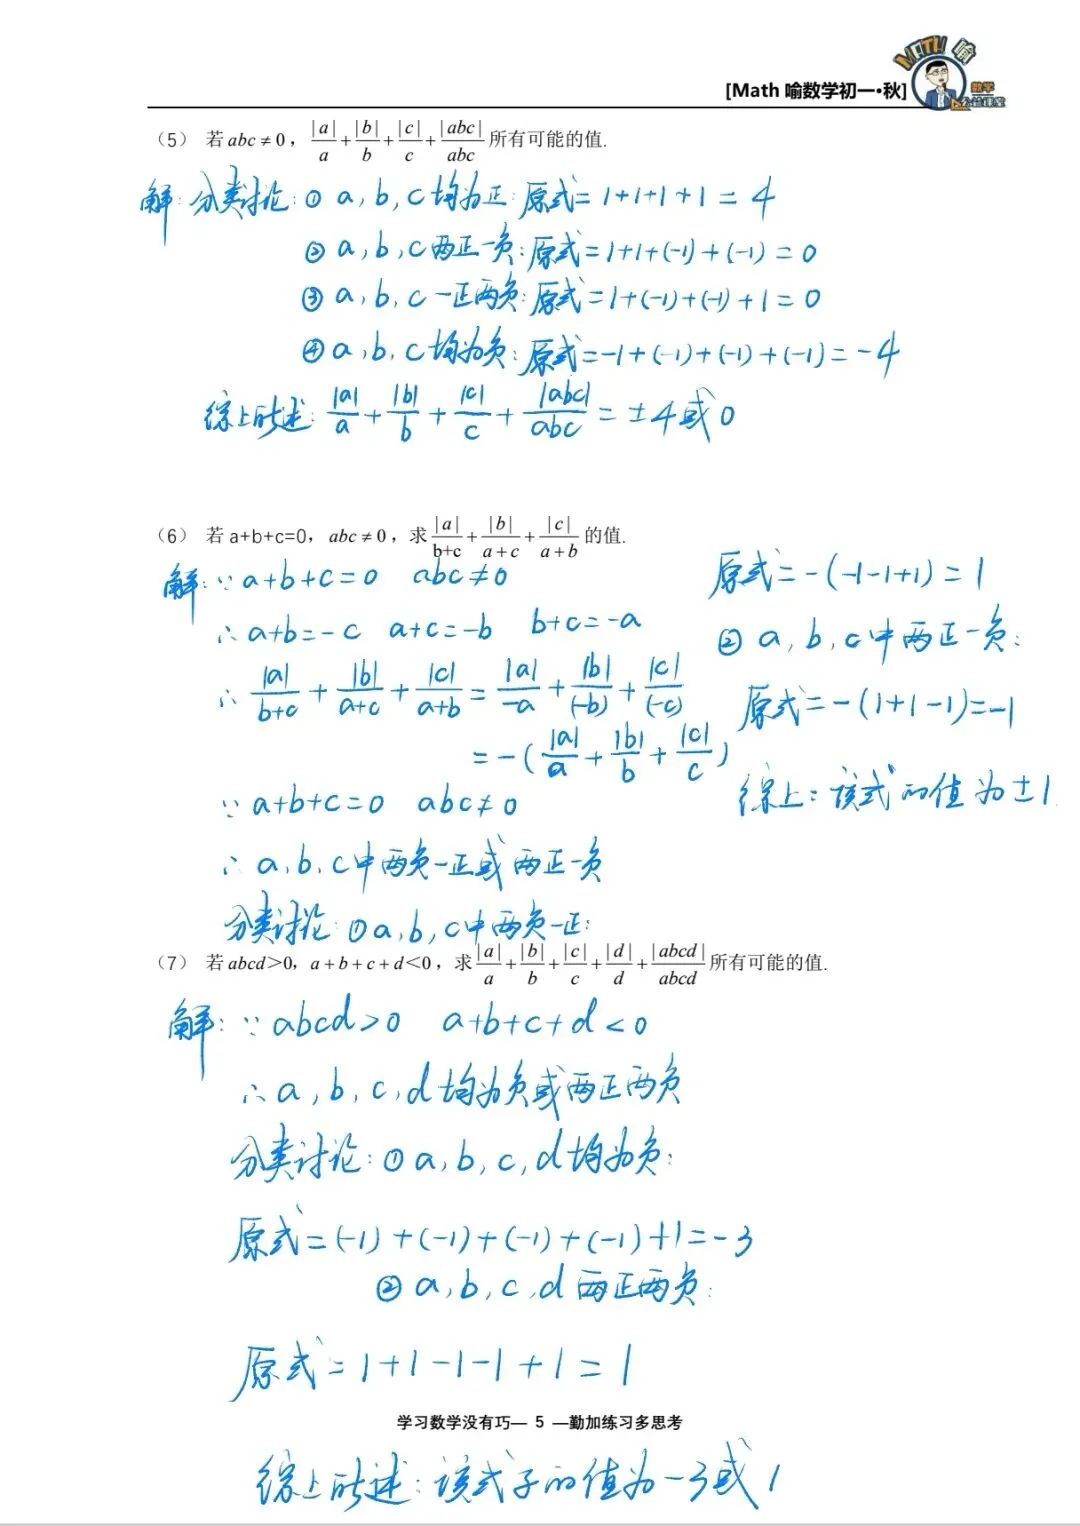 [Math 喻数学初一·秋]
MATH 喻
数学
公益课堂
（5） 若 abc ≠ 0， |a|/a + |b|/b + |c|/c + |abc|/abc 所有可能的值.
解：分类讨论：① a, b, c 均为正：原式 = 1+1+1+1 = 4
② a, b, c 两正一负：原式 = 1+1+(-1)+(-1) = 0
③ a, b, c 一正两负：原式 = 1+(-1)+(-1)+1 = 0
④ a, b, c 均为负：原式 = -1+(-1)+(-1)+(-1) = -4
综上所述：|a|/a + |b|/b + |c|/c + |abc|/abc = ±4或0
（6） 若 a+b+c=0， abc ≠ 0， 求 |a|/b+c + |b|/a+c + |c|/a+b 的值.
解：∵ a+b+c=0 abc≠0
∴ a+b=-c a+c=-b b+c=-a
∴ |a|/b+c + |b|/a+c + |c|/a+b = |a|/-a + |b|/(-b) + |c|/(-c)
= -( |a|/a + |b|/b + |c|/c )
∵ a+b+c=0 abc≠0
∴ a, b, c中两负一正或两正一负
分类讨论：① a, b, c中两负一正：
原式 = -(-1-1+1) = 1
② a, b, c中两正一负：
原式 = -(1+1-1) = -1
综上：该式的值为±1
（7） 若 abcd>0， a+b+c+d<0， 求 |a|/a + |b|/b + |c|/c + |d|/d + |abcd|/abcd 所有可能的值.
解：∵ abcd>0 a+b+c+d<0
∴ a, b, c, d均为负或两正两负
分类讨论：① a, b, c, d均为负：
原式 = (-1)+(-1)+(-1)+(-1)+1 = -3
② a, b, c, d 两正两负：
原式 = 1+1-1-1+1 = 1
学习数学没有巧— 5 —勤加练习多思考
综上所述：该式子的值为-3或1